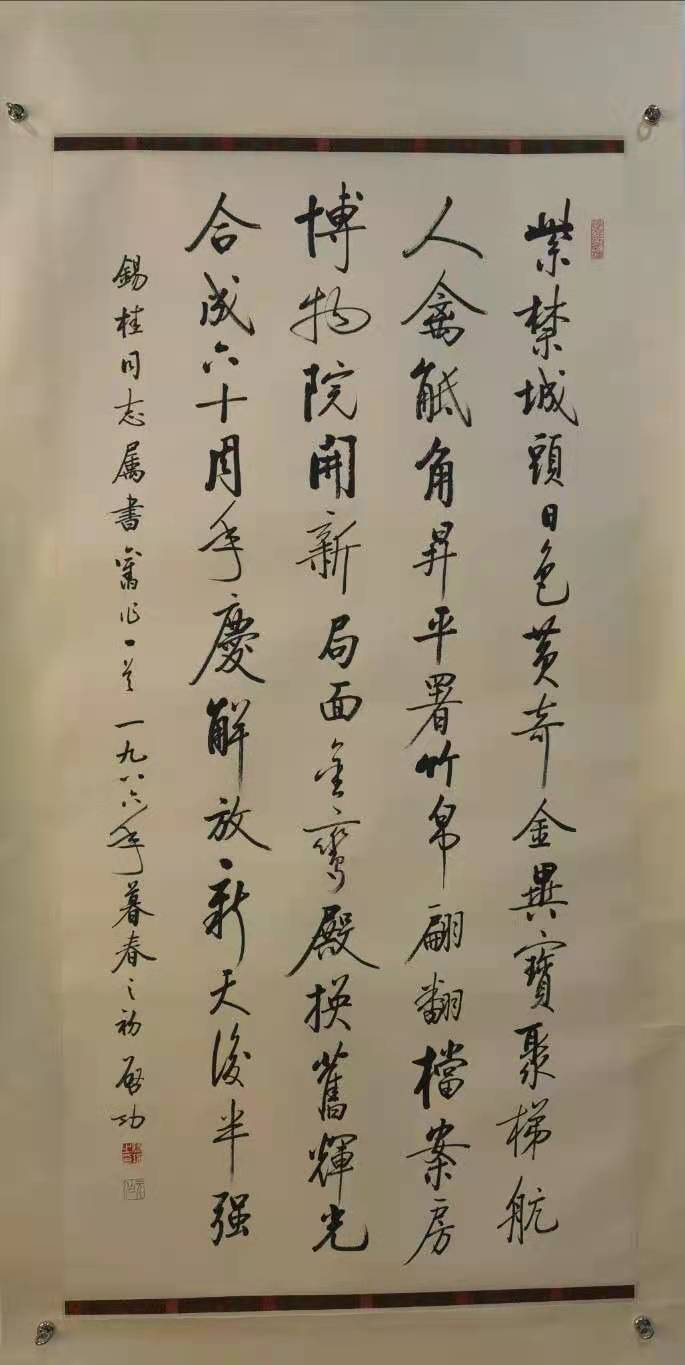 紫禁城頭日色黃奇金異寶聚梯航
人禽觝角昇平署竹帛翩翻檔案房
博物院開新局面金鸞殿换舊輝光
合成六十周年慶解放新天後半强
錫桂同志属書舊作一首一九八六年暮春之初啓功